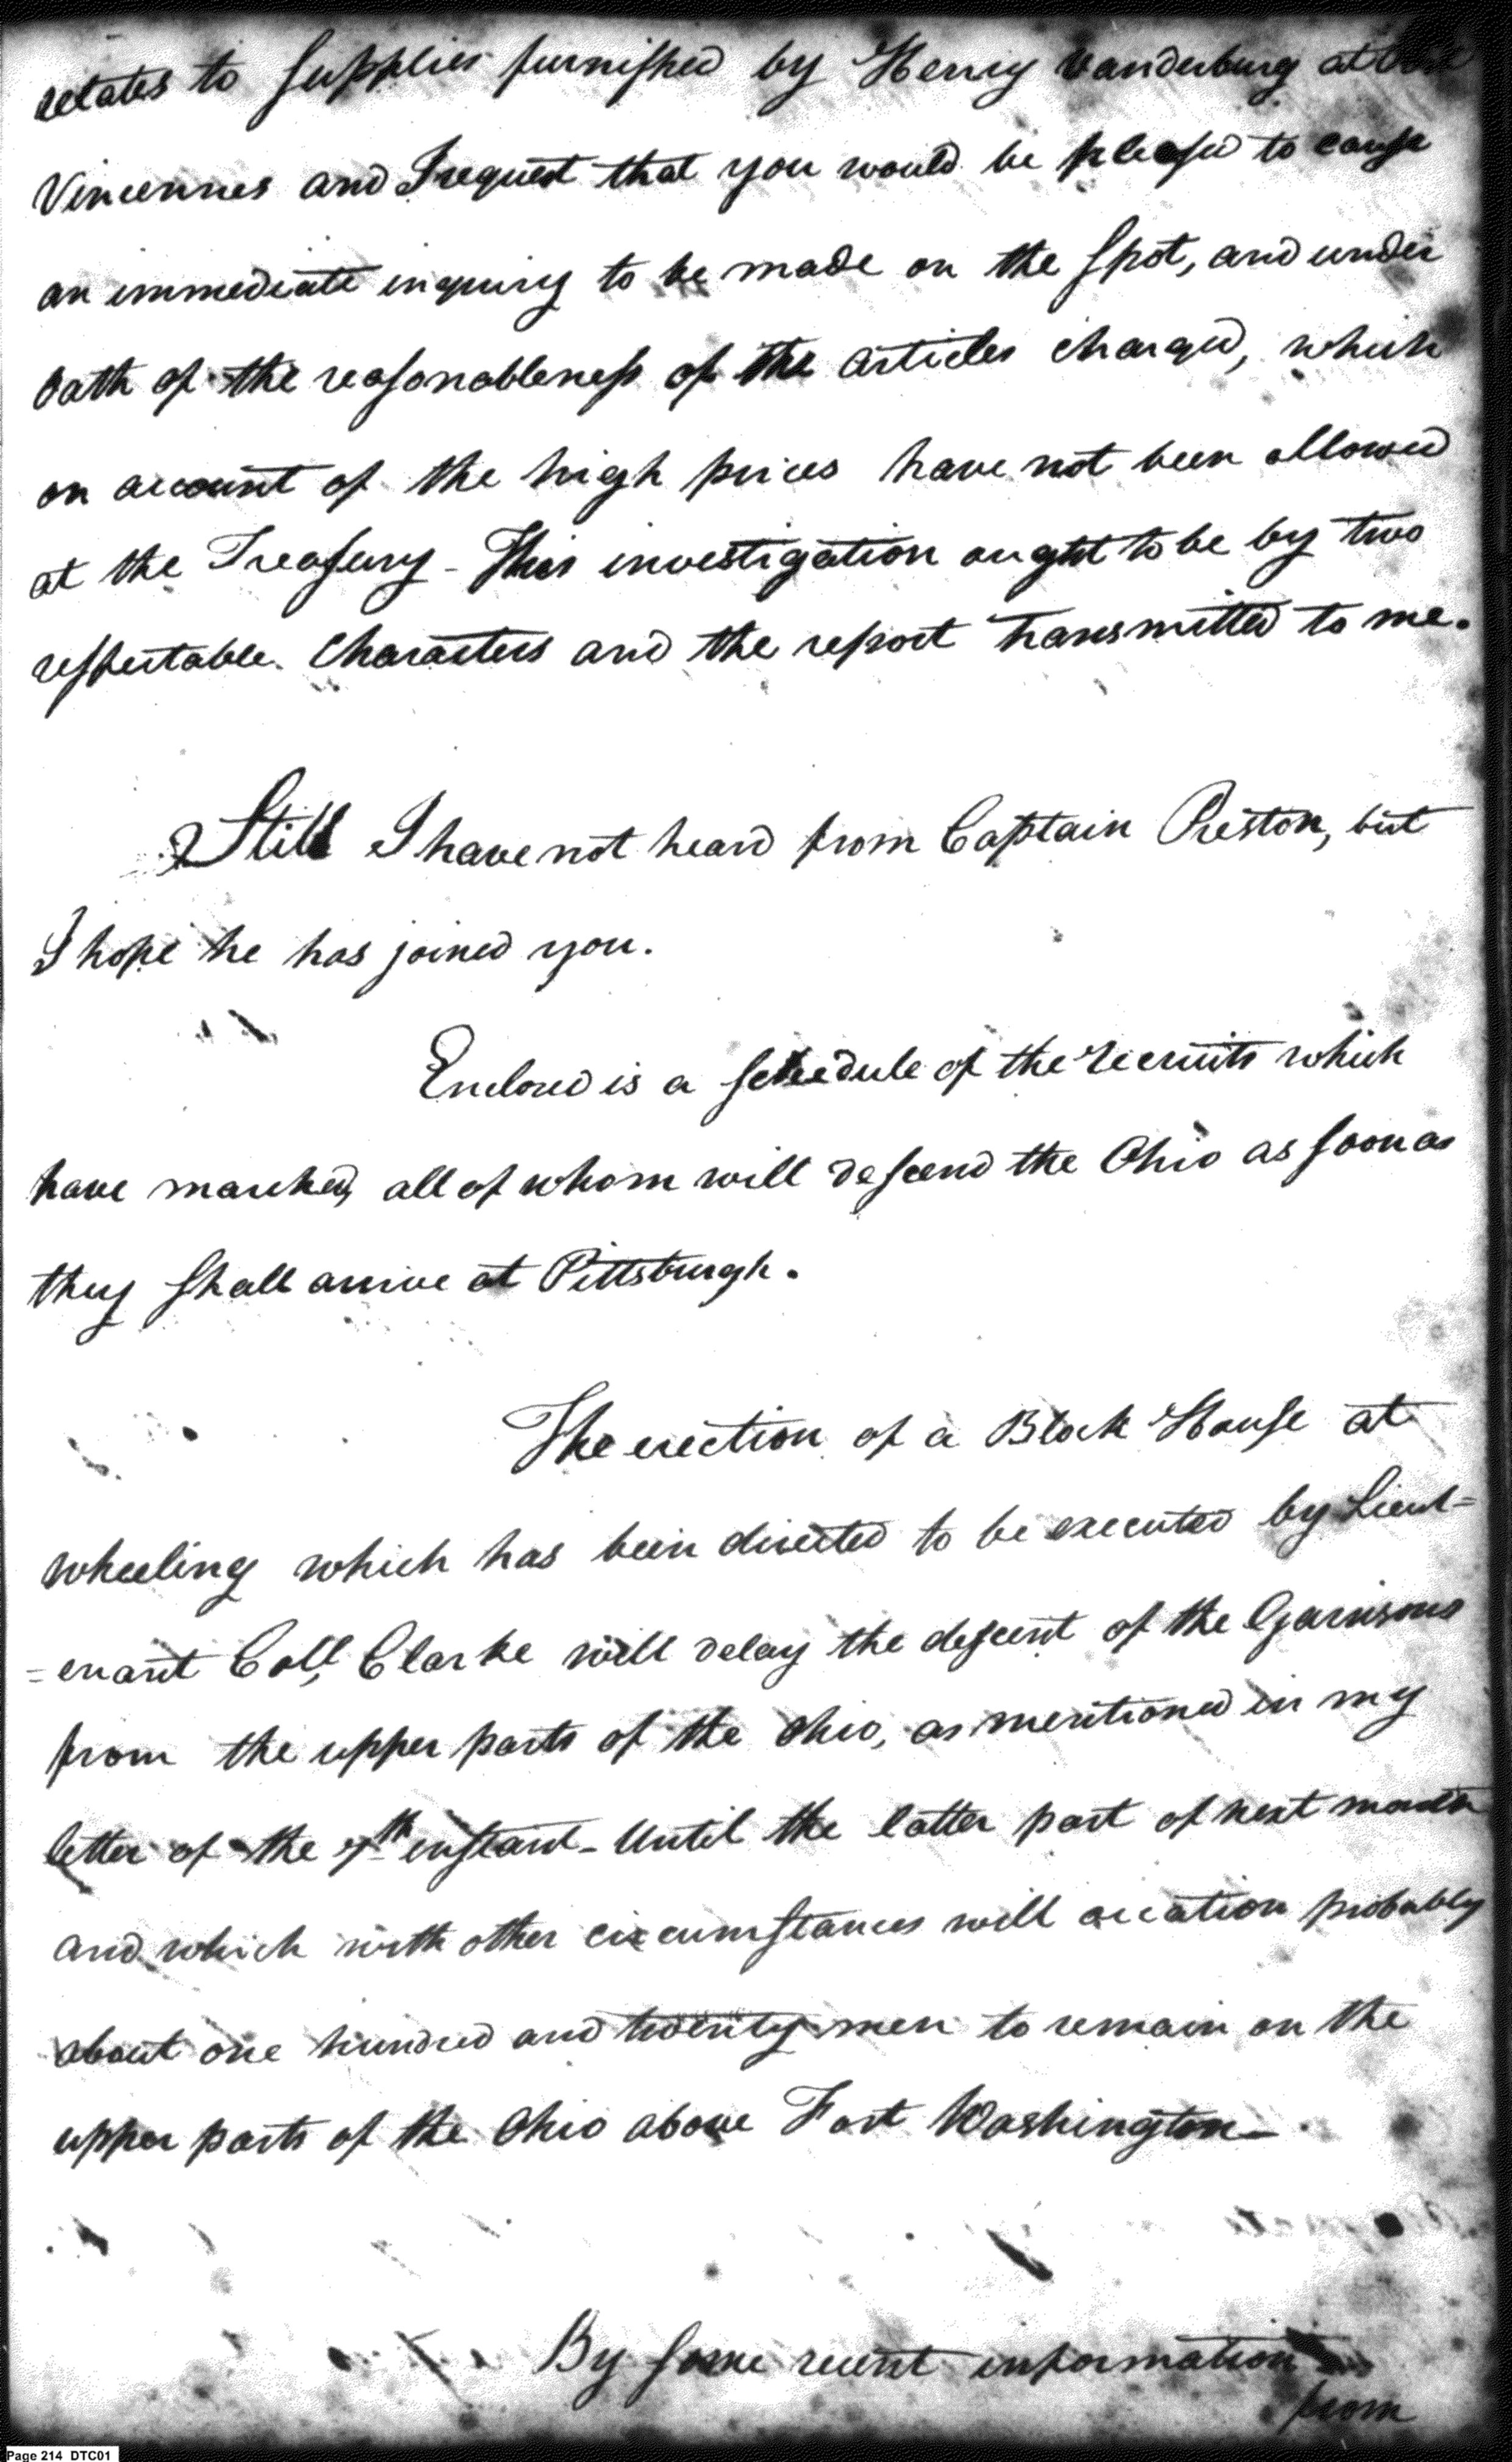 relates to supplies furnished by Henry Vanderburg at
Vincennes and I request that you would be pleased to cause
an immediate inquiry to be made on the spot, and under
Oath of the reasonableness of the articles charged, which
on account of the high prices have not been allowed
at the Treasury - This investigation ought to be by two
respectable Characters and the report transmitted to me.
Still I have not heard from Captain Preston, but
I hope he has joined you.
Enclosed is a schedule of the recruits which
have marched, all of whom will descend the Ohio as soon as
they shall arrive at Pittsburgh.
The erection of a Block House at
wheeling which has been directed to be executed by Lieut=
=enant Coll, Clarke will delay the descent of the Garrisons
from the upper parts of the Ohio, as mentioned in my
letter of the 7th instant - Until the latter part of next month
and which with other circumstances will occation probably
about one hundred and twenty men to remain on the
upper parts of the Ohio above Fort Washington -
By some recent information
from
Page 214 DTC01